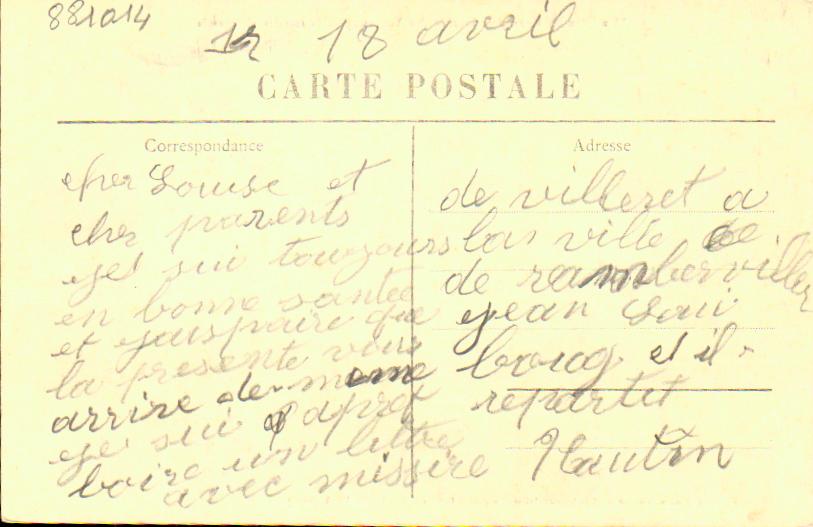 881014
12 18 avril
CARTE POSTALE
Correspondance
cher Louise et
cher parents
eje sui toujours
en bonne santée
et ejaispaire que
la presente vous
arrire de meme
eje sui apret
boire un littre
avec missire
Adresse
de villeret a
las ville de
de ramberviller
ejean Loui
boug et il
repartet
Hautin